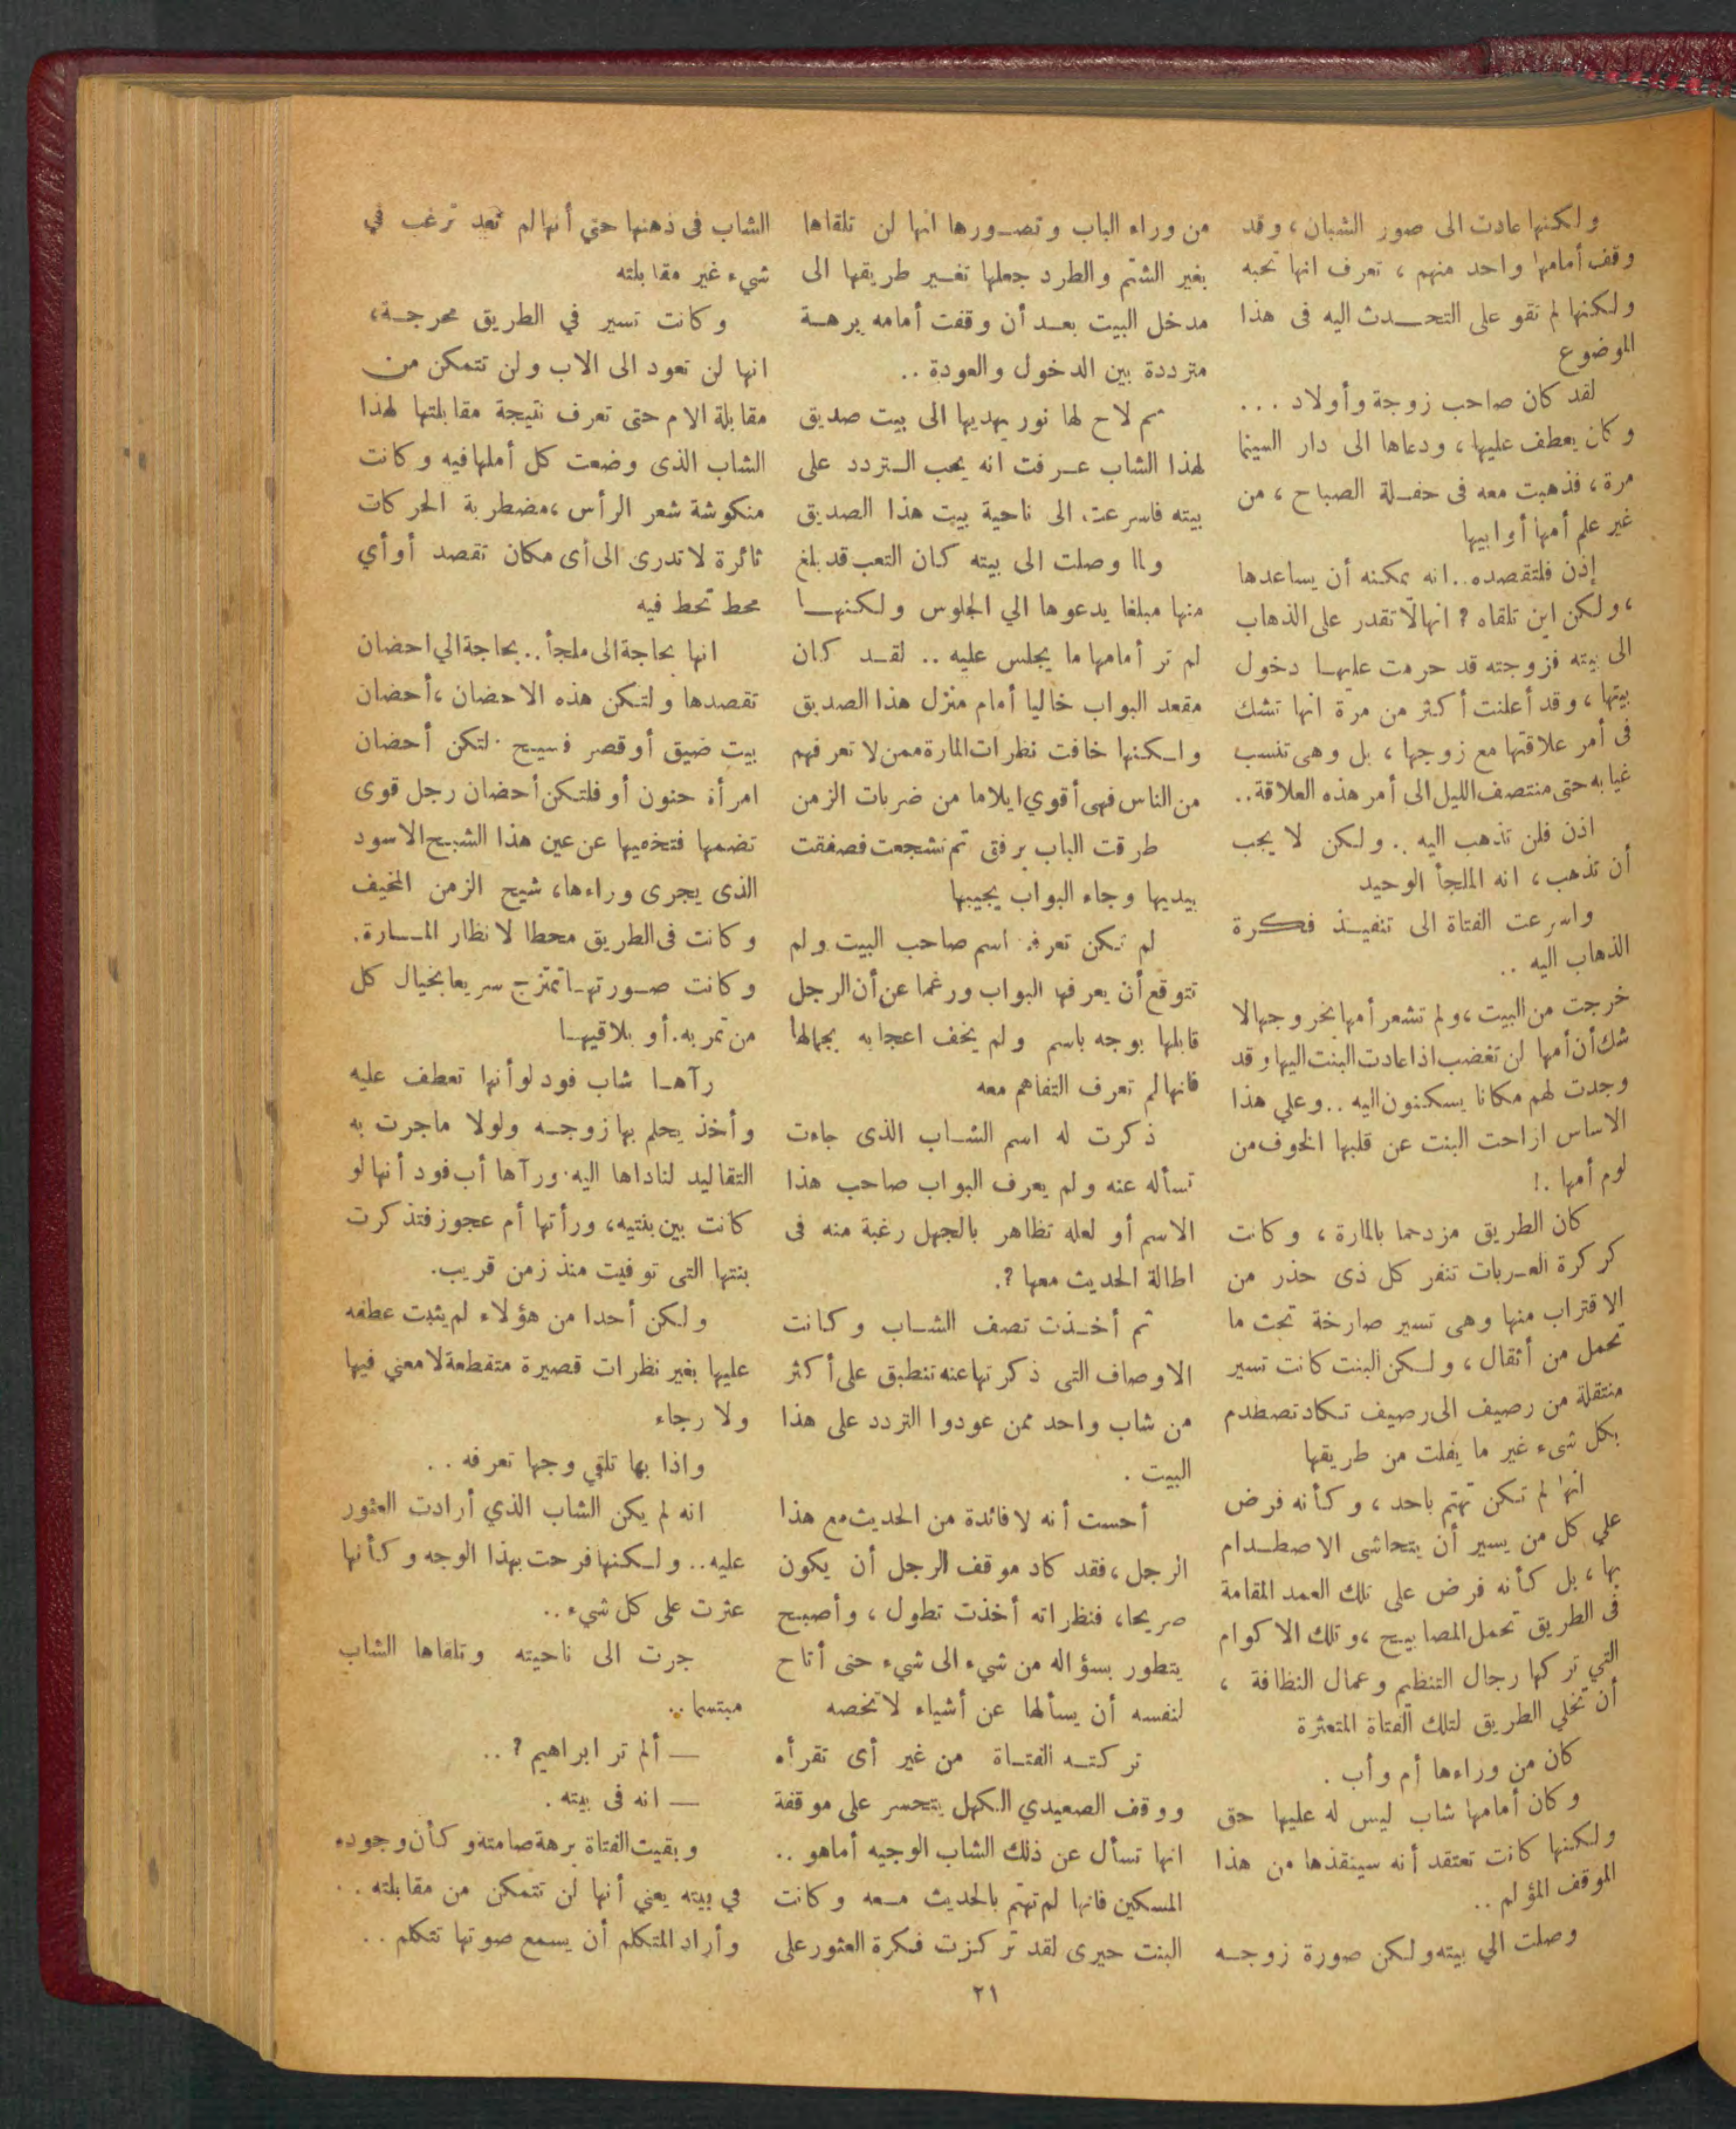 ولكنها عادت الى صور الشبان ، وقد
وقف أمامها واحد منهم ، تعرف انها تحبه
ولكنها لم تقو على التحدث اليه فى هذا
الموضوع
لقد كان صاحب زوجة وأولاد ...
وكان يعطف عليها ، ودعاها الى دار السينما
مرة ، فذهبت معه فى حفلة الصباح ، من
غير علم أمها أو ابيها
إذن فلتقصده .. انه يمكنه أن يساعدها
، ولكن اين تلقاه ? انها لا تقدر على الذهاب
الى بيته فزوجته قد حرمت عليها دخول
بيتها ، وقد أعلنت أكثر من مرة انها تشك
فى أمر علاقتها مع زوجها ، بل وهى تنسب
غيابه حتى منتصف الليل الى أمر هذه العلاقة ..
اذن فلن تذهب اليه .. ولكن لا يجب
أن تذهب ، انه الملجأ الوحيد
واسرعت الفتاة الى تنفيذ فكرة
الذهاب اليه ..
خرجت من البيت ، ولم تشعر أمها بخروجها لا
شك أن أمها لن تغضب اذا عادت البنت اليها وقد
وجدت لهم مكانا يسكنون اليه .. وعلي هذا
الاساس ازاحت البنت عن قلبها الخوف من
لوم أمها .!
كان الطريق مزدحما بالمارة ، وكانت
كركرة العربات تنفر كل ذى حذر من
الاقتراب منها وهى تسير صارخة تحت ما
تحمل من أثقال ، ولكن البنت كانت تسير
منتقلة من رصيف الى رصيف تكاد تصطدم
بكل شىء غير ما يفلت من طريقها
انها لم تكن تهتم باحد ، وكأنه فرض
علي كل من يسير أن يتحاشى الاصطدام
بها ، بل كأنه فرض على تلك العمد المقامة
فى الطريق تحمل المصابيح ، وتلك الاكوام
التي تركها رجال التنظيم وعمال النظافة ،
أن تخلي الطريق لتلك الفتاة المتعثرة
كان من وراءها أم وأب .
وكان أمامها شاب ليس له عليها حق
ولكنها كانت تعتقد أنه سينقذها من هذا
الموقف المؤلم ..
وصلت الي بيته ولكن صورة زوجه
من وراء الباب وتصورها انها لن تلقاها
بغير الشتم والطرد جعلها تغير طريقها الى
مدخل البيت بعد أن وقفت أمامه برهة
مترددة بين الدخول والعودة ..
ثم لاح لها نور يهديها الى بيت صديق
لهذا الشاب عرفت انه يحب التردد على
بيته فاسرعت الى ناحية بيت هذا الصديق
ولما وصلت الى بيته كان التعب قد بلغ
منها مبلغا يدعوها الي الجلوس ولكنها
لم تر أمامها ما يجلس عليه .. لقد كان
مقعد البواب خاليا أمام منزل هذا الصديق
ولكنها خافت نظرات المارة ممن لا تعرفهم
من الناس فهى أقوي ايلاما من ضربات الزمن
طرقت الباب برفق ثم تشجعت فصفقت
بيديها وجاء البواب يجيبها
لم تكن تعرف اسم صاحب البيت ولم
تتوقع أن يعرفها البواب ورغما عن أن الرجل
قابلها بوجه باسم ولم يخف اعجابه بجمالها
فانها لم تعرف التفاهم معه
ذكرت له اسم الشاب الذى جاءت
تسأله عنه ولم يعرف البواب صاحب هذا
الاسم أو لعله تظاهر بالجهل رغبة منه فى
اطالة الحديث معها ?.
ثم أخذت تصف الشاب وكانت
الاوصاف التى ذكرتها عنه تنطبق على أكثر
من شاب واحد ممن عودوا التردد على هذا
البيت .
أحست أنه لا فائدة من الحديث مع هذا
الرجل ، فقد كاد موقف الرجل أن يكون
صريحا ، فنظراته أخذت تطول ، وأصبح
يتطور بسؤاله من شيء الى شيء حتى أتاح
لنفسه أن يسألها عن أشياء لا تخصه
تركته الفتاة من غير أى تقرأه
ووقف الصعيدي الكهل يتحسر على موقفة
انها تسأل عن ذلك الشاب الوجيه أما هو ..
المسكين فانها لم تهتم بالحديث معه وكانت
البنت حيرى لقد تركزت فكرة العثور على
الشاب فى ذهنها حتي أنها لم تعد ترغب في
شيء غير مقابلته
وكانت تسير في الطريق محرجة ،
انها لن تعود الى الاب ولن تتمكن من
مقابلة الام حتى تعرف نتيجة مقابلتها لهذا
الشاب الذى وضعت كل أملها فيه وكانت
منكوشة شعر الرأس ، مضطربة الحركات
ثائرة لا تدرى الى أى مكان تقصد أو أي
محط تحط فيه
انها بحاجة الى ملجأ .. بحاجة الي احضان
تقصدها ولتكن هذه الاحضان ، أحضان
بيت ضيق أو قصر فسيح . لتكن أحضان
امرأة حنون أو فلتكن أحضان رجل قوى
تضمها فتخفيها عن عين هذا الشبح الاسود
الذى يجرى وراءها ، شبح الزمن المخيف
وكانت فى الطريق محطا لانظار المارة .
وكانت صورتها تمتزج سريعا بخيال كل
من تمر به . أو يلاقيها
رآها شاب فود لو أنها تعطف عليه
وأخذ يحلم بها زوجه ولولا ما جرت به
التقاليد لناداها اليه . ورآها أب فود أنها لو
كانت بين بنتيه ، ورأتها أم عجوز فتذكرت
بنتها التى توفيت منذ زمن قريب .
ولكن أحدا من هؤلاء لم يثبت عطفه
عليها بغير نظرات قصيرة متقطعة لا معني فيها
ولا رجاء
واذا بها تلقي وجها تعرفه ..
انه لم يكن الشاب الذي أرادت العثور
عليه .. ولكنها فرحت بهذا الوجه وكأنها
عثرت على كل شيء ..
جرت الى ناحيته وتلقاها الشاب
مبتسما ..
— ألم تر ابراهيم ? ..
— انه فى بيته .
وبقيت الفتاة برهة صامتة وكأن وجوده
في بيته يعني أنها لن تتمكن من مقابلته ..
وأراد المتكلم أن يسمع صوتها تتكلم ..
٢١